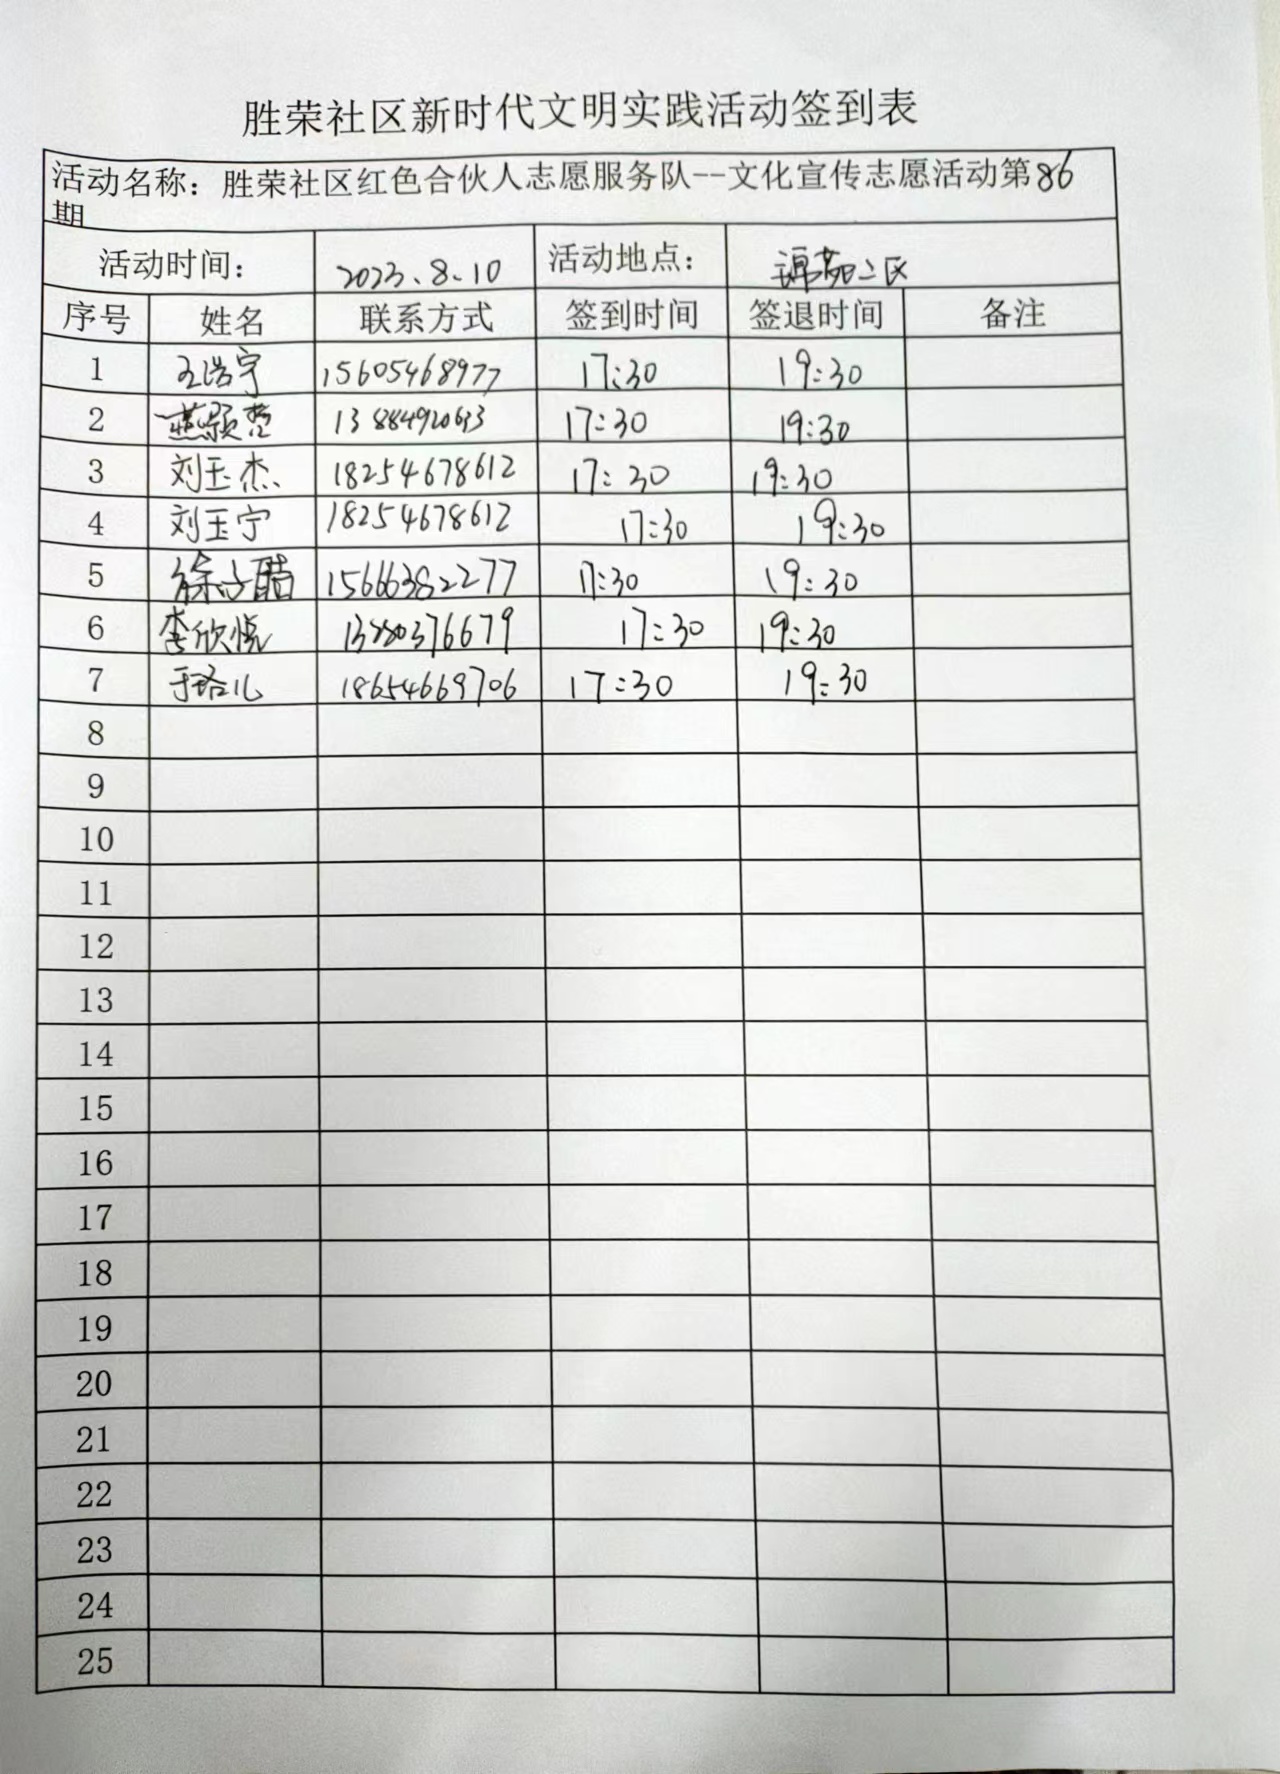 胜荣社区新时代文明实践活动签到表
活动名称：胜荣社区红色合伙人志愿服务队--文化宣传志愿活动第86
期
活动时间： 2023.8.10 活动地点： 锦苑二区
序号 姓名 联系方式 签到时间 签退时间 备注
1 王浩宇 15605468977 17:30 19:30
2 17:30 19:30
3 刘玉杰 18254678612 17:30 19:30
4 刘玉宁 18254678612 17:30 19:30
5 徐 15666382277 17:30 19:30
6 李欣悦 17:30 19:30
7 于珞儿 18654669706 17:30 19:30
8
9
10
11
12
13
14
15
16
17
18
19
20
21
22
23
24
25